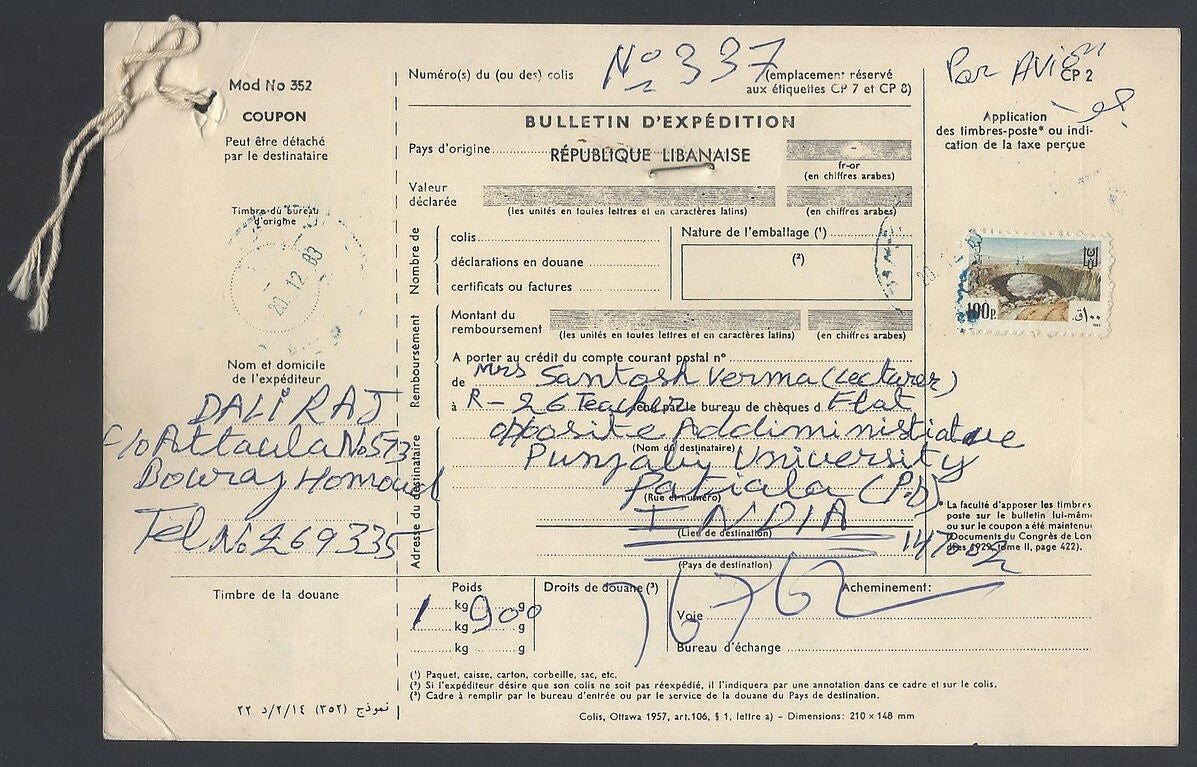 Mod No 352
COUPON
Peut être détaché
par le destinataire
Timbre du bureau
d'origine
20.12.83
Nom et domicile
de l'expéditeur
DALI RAJ
c/o Attaula No 573
Bouraj Homoud
Tel No 269335
Timbre de la douane
نموذج (٣٥٢) ٢/١٤/د ٢٢
Numéro(s) du (ou des) colis
No 337
(emplacement réservé
aux étiquettes CP 7 et CP 8)
BULLETIN D'EXPÉDITION
Pays d'origine
RÉPUBLIQUE LIBANAISE
fr-or
(en chiffres arabes)
Valeur
déclarée
(les unités en toutes lettres et en caractères latins)
(en chiffres arabes)
Nombre de
colis
déclarations en douane
certificats ou factures
Nature de l'emballage (¹)
(²)
Remboursement
Montant du
remboursement
(les unités en toutes lettres et en caractères latins)
(en chiffres arabes)
A porter au crédit du compte courant postal nº
de Mrs Santosh Verma (Lecturer)
à R-26 Teacher par le bureau de chèques d Flat
Adresse du destinataire
opposite Addiministiative
(Nom du destinataire)
Punjabi University
Patiala (P.D)
(Rue et numéro)
INDIA
(Lieu de destination)
(Pays de destination)
Poids
1 kg 900 g
kg g
kg g
Droits de douane (³)
Acheminement:
Voie
Bureau d'échange
(¹) Paquet, caisse, carton, corbeille, sac, etc.
(²) Si l'expéditeur désire que son colis ne soit pas réexpédié, il l'indiquera par une annotation dans ce cadre et sur le colis.
(³) Cadre à remplir par le bureau d'entrée ou par le service de la douane du Pays de destination.
Colis, Ottawa 1957, art.106, § 1, lettre a) – Dimensions: 210 × 148 mm
Par AVion
CP 2
Application
des timbres-poste* ou indi-
cation de la taxe perçue
100P.
١٠٠ق
* La faculté d'apposer les timbres
poste sur le bulletin lui-mêm
ou sur le coupon a été maintenu
(Documents du Congrès de Lon
dres 1929, tome II, page 422);